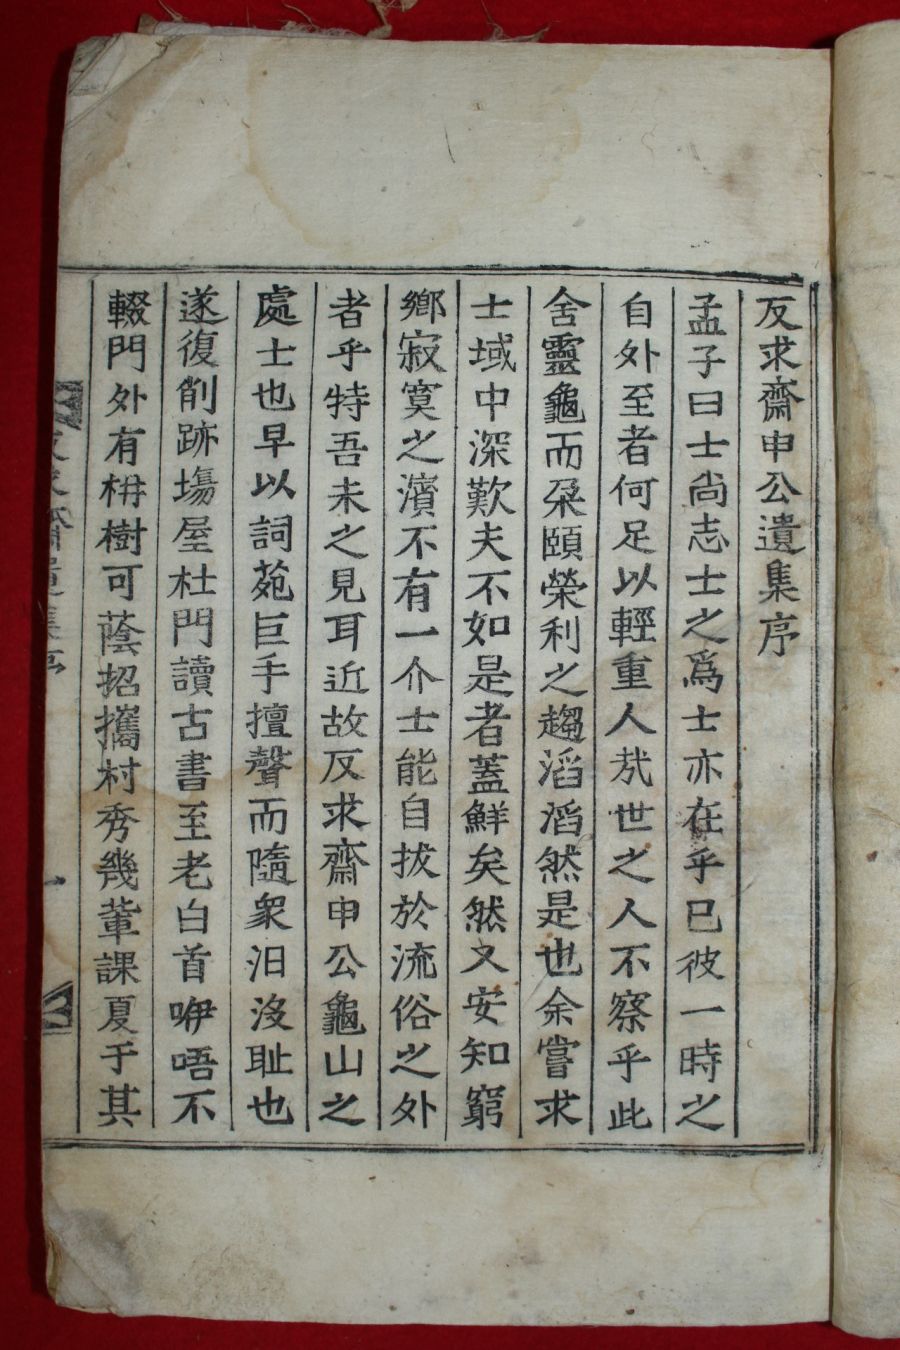 反求齋申公遺集序
孟子曰士尚志士之爲士亦在乎已彼一時之
自外至者何足以輕重人㦲世之人不察乎此
舍靈龜而朶頤榮利之趨滔滔然是也余嘗求
士域中深歎夫不如是者蓋鮮矣然又安知窮
鄉寂寞之濱不有一介士能自拔於流俗之外
者乎特吾未之見耳近故反求齋申公龜山之
處士也早以詞苑巨手擅聲而隨衆汨沒耻也
遂復削跡塲屋杜門讀古書至老白首咿唔不
輟門外有枏樹可蔭招攜村秀幾輩課夏于其
反求齋遺集序
一